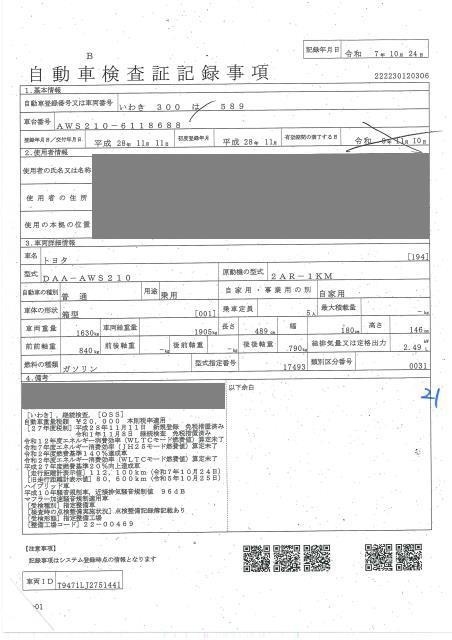 記録年月日 令和 7年 10月 24日
B
自動車検査証記録事項
222230120306
1.基本情報
自動車登録番号又は車両番号 いわき 300 は 589
車台番号 AWS210-6118688
登録年月日/交付年月日 平成 28年 11月 11日 初度登録年月 平成 28年 11月 有効期間の満了する日 令和 9年 11月 10日
2.使用者情報
使用者の氏名又は名称
使用者の住所
使用の本拠の位置
3.車両詳細情報
車名 トヨタ [194]
型式 DAA-AWS210 原動機の型式 2AR-1KM
自動車の種別 普通 用途 乗用 自家用・事業用の別 自家用
車体の形状 箱型 [001] 乗車定員 5人 最大積載量 -kg
車両重量 1630kg 車両総重量 1905kg 長さ 489cm 幅 180cm 高さ 146cm
前前軸重 840kg 前後軸重 -kg 後前軸重 -kg 後後軸重 790kg 総排気量又は定格出力 2.49 kW L
燃料の種類 ガソリン 型式指定番号 17493 類別区分番号 0031
4.備考
以下余白
21
[いわき],継続検査,[OSS]
自動車重量税額 ¥20,000 本則税率適用
[27年度税制]平成28年11月11日 新規登録 免税措置済み
令和1年11月8日 継続検査 免税措置済み
令和12年度エネルギー消費効率(WLTCモード燃費値)算定未了
令和7年度エネルギー消費効率(JH25モード燃費値)算定未了
令和2年度燃費基準140%達成車
令和2年度エネルギー消費効率(WLTCモード燃費値)算定未了
平成27年度燃費基準20%向上達成車
[走行距離計表示値]112,100km(令和7年10月24日)
[旧走行距離計表示値]80,600km(令和5年10月25日)
ハイブリッド車
平成10年騒音規制車,近接排気騒音規制値 96dB
マフラー加速騒音規制適用車
[受検種別]指定整備車
[検査時の点検整備実施状況]点検整備記録簿記載あり
[受検形態]指定整備工場
[整備工場コード]22-00469
[注意事項]
記録事項はシステム登録時点の情報となります
車両ID T9471LJ2751441
-01